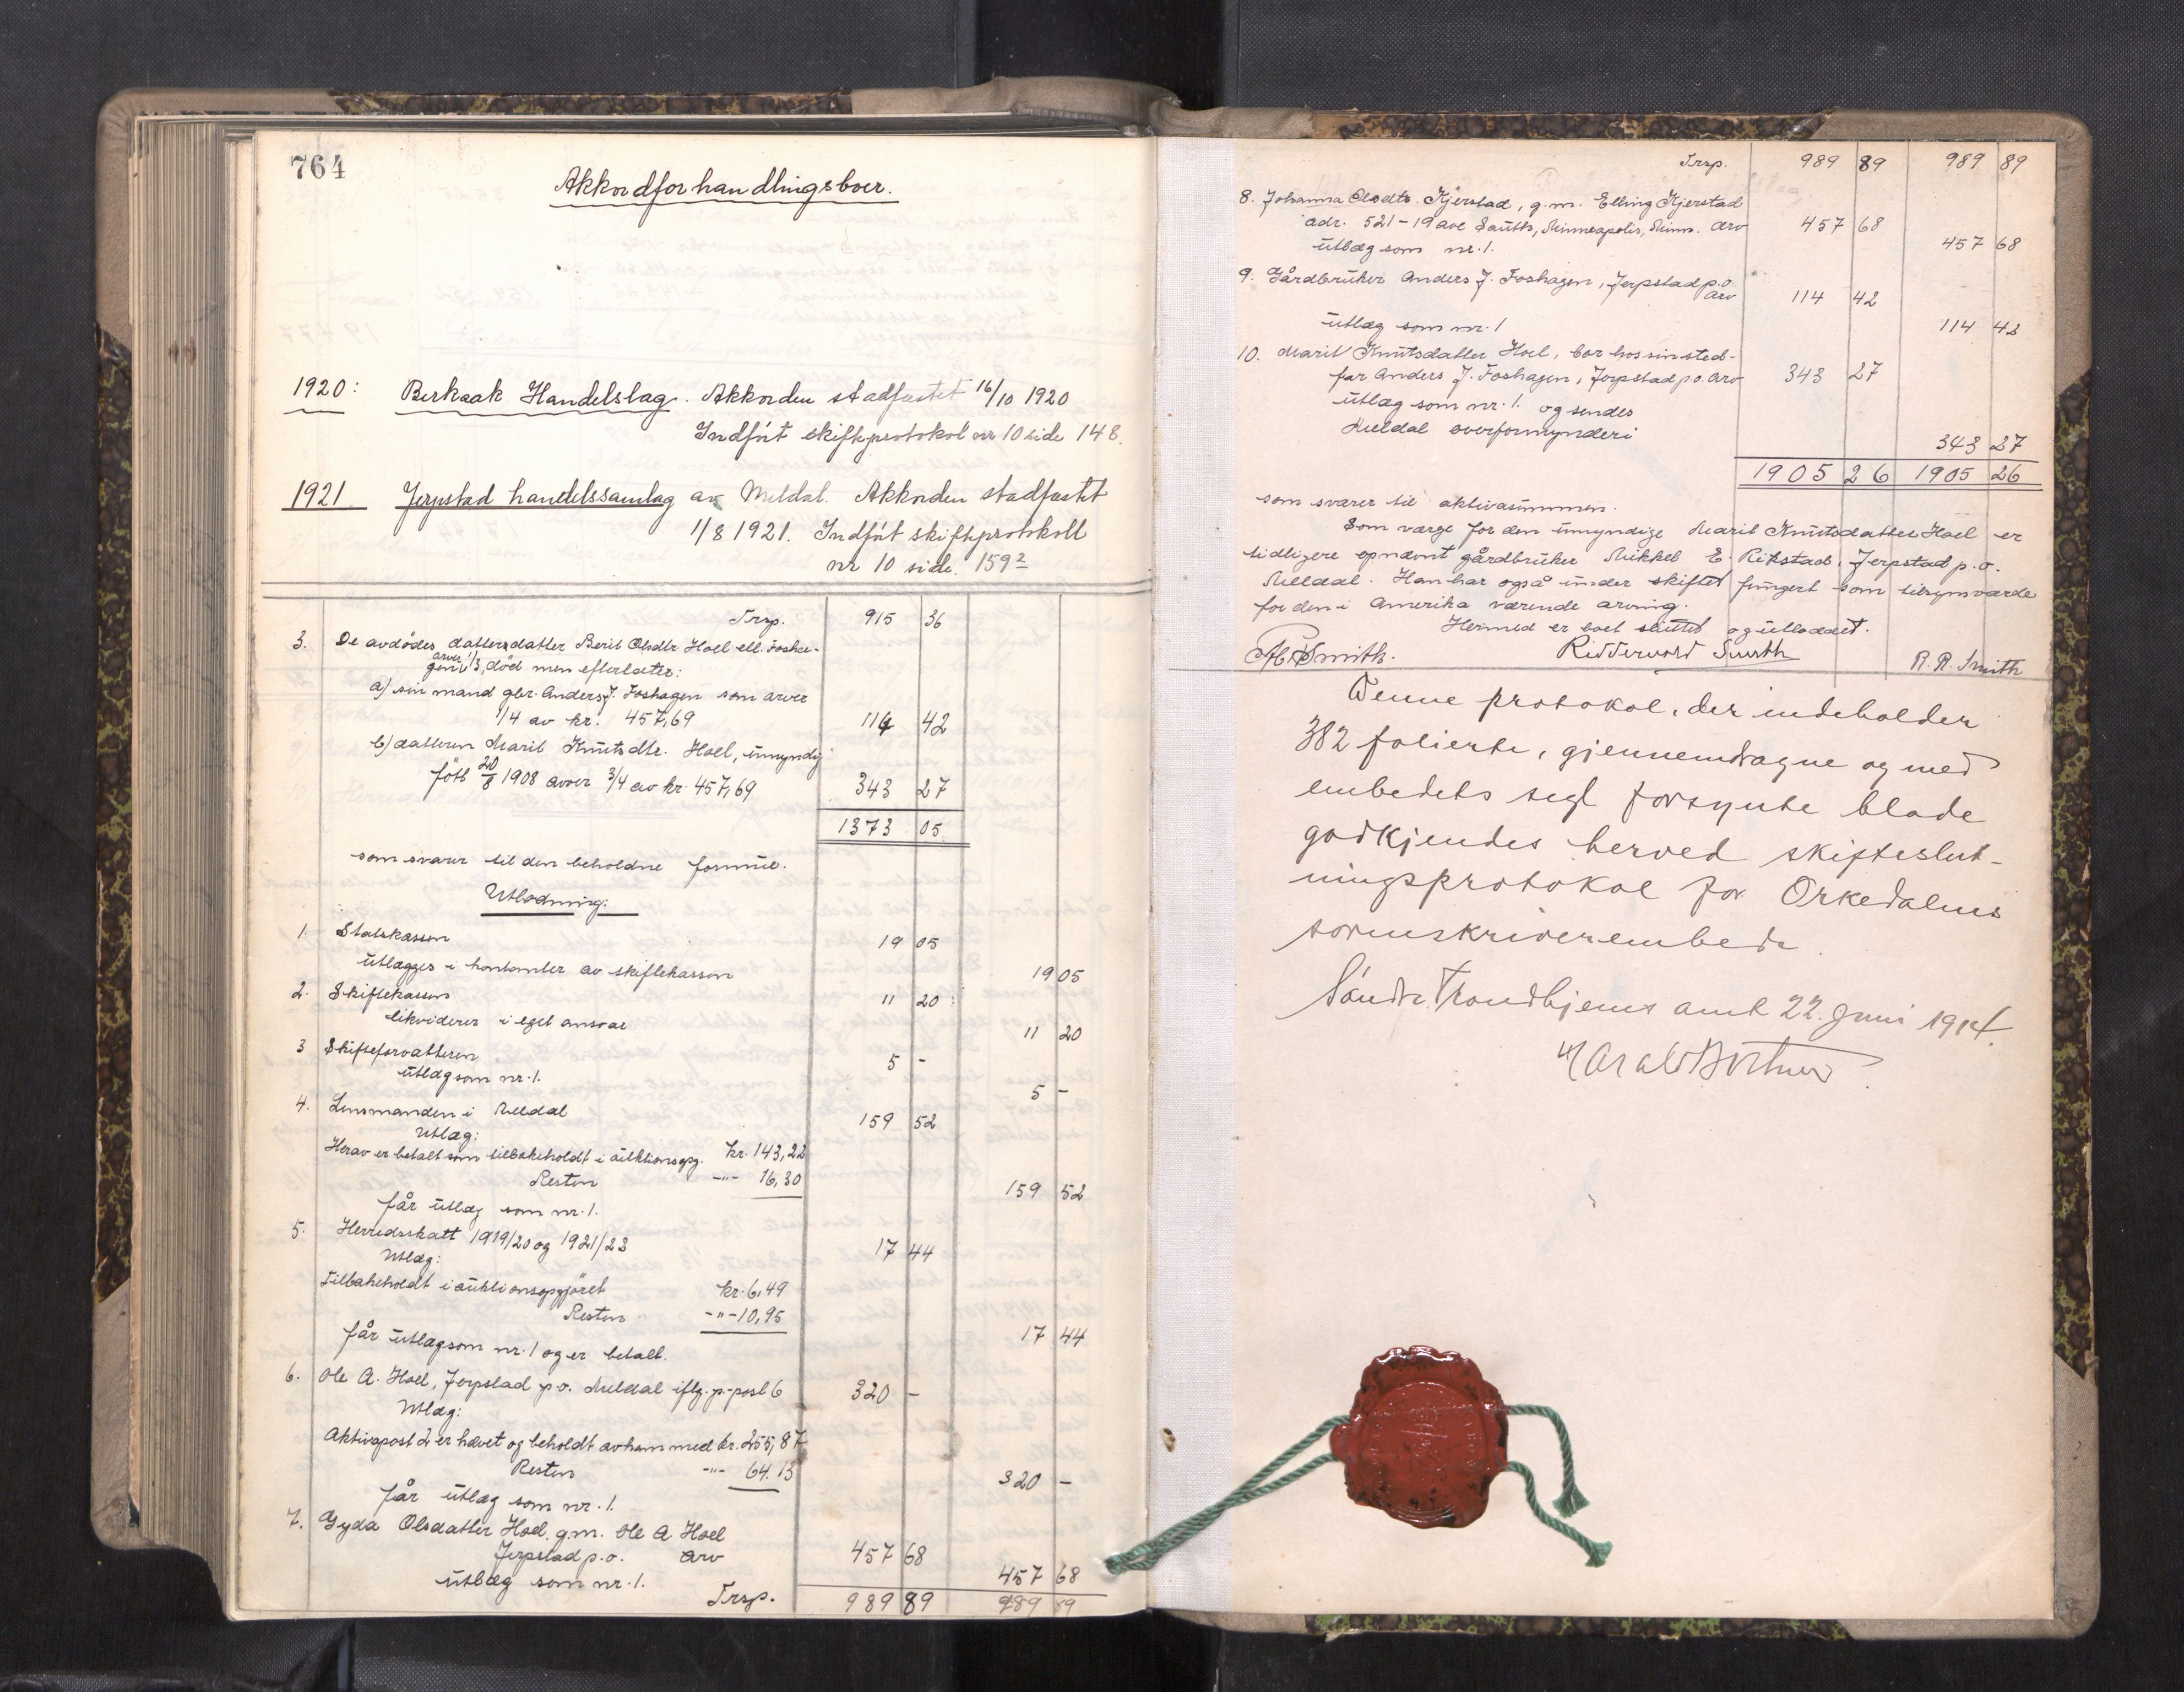 764
Akkordforhandlingsboer.
1920: Berkaak Handelslag. Akkorden stadfæstet 16/10 1920
Indført skifteprotokol nr 10 side 148.
1921. Jerpstad handelssamlag av Meldal. Akkorden stadfæstet
1/8 1921. Indført skifteprotokoll
nr 10 side 159²
Trsp. 915 36
3. De avdødes dattersdatter Berit Olsdtr. Hoel ell. Fosha-
gen arver 1/3, død men efterlater:
a) sin mand gbr. Anders J. Foshagen som arver
1/4 av kr. 457,69 114 42
b) datteren Marit Knutsdtr. Hoel, umyndig
født 20/8 1908 arver 3/4 av kr. 457,69 343 27
1373 05
som svarer til den beholdne formue.
Utlodning:
1. Statskassen 19 05
utlægges i kontanter av skiftekassen 19 05
2. Skiftekassen 11 20
likviderer i eget ansvar 11 20
3 Skifteforvalteren 5 -
utlæg som nr. 1. 5 -
4. Lensmanden i Meldal 159 52
Utlæg:
Herav er betalt som tilbakeholdt i auktionsopg. kr. 143,22
Resten -"- 16,30 159 52
får utlæg som nr. 1.
5. Herredsskatt 1919/20 og 1921/22 17 44
Utlæg:
Tilbakeholdt i auktionsopgjøret kr. 6,49
Resten -"- 10,95 17 44
får utlæg som nr. 1 og er betalt.
6. Ole A. Hoel, Jerpstad p.o. Meldal iflg. p-post 6 320 -
Utlæg:
Aktivapost 2 er hævet og beholdt av ham med kr. 255,87
Resten -"- 64.13 320 -
får utlæg som nr. 1.
7. Gyda Olsdatter Hoel, g.m. Ole A. Hoel
Jerpstad p.o. Arv 457 68
utlæg som nr. 1. 457 68
Trsp. 989 89 989 89
Trsp. 989 89 989 89
8. Johanna Olsdtr. Kjerstad, g.m. Elling Kjerstad
adr. 521-19 ave South, Minneapolis, Minn. Arv 457 68
utlæg som nr. 1. 457 68
9. Gårdbruker Anders J. Foshagen, Jerpstad p.o.
Arv 114 42
utlæg som nr. 1 114 42
10. Marit Knutsdatter Hoel, bor hos sin sted-
far Anders J. Foshagen, Jerpstad p.o. Arv 343 27
utlæg som nr. 1. og sendes
Meldal overformynderi 343 27
1905 26 1905 26
som svarer til aktivasummen.
Som værge for den umyndige Marit Knutsdatter Hoel er
tidligere opnævnt gårdbruker Mikkel E. Rikstad, Jerpstad p.o.
Meldal. Han har også under skiftet fungert som tilsynsværge
for den i Amerika værende arving.
Hermed er boet sluttet og utloddet.
Smith. Riddervold Smith R. R. Smith
Denne protokol, der indeholder
382 folierte, gjennemdragne og med
embedets segl forsynte blade
godkjendes herved skifteslut-
ningsprotokol for Orkedalens
sorenskriverembede.
Søndre Trondhjems amt 22. Juni 1914.
Harald Bothner